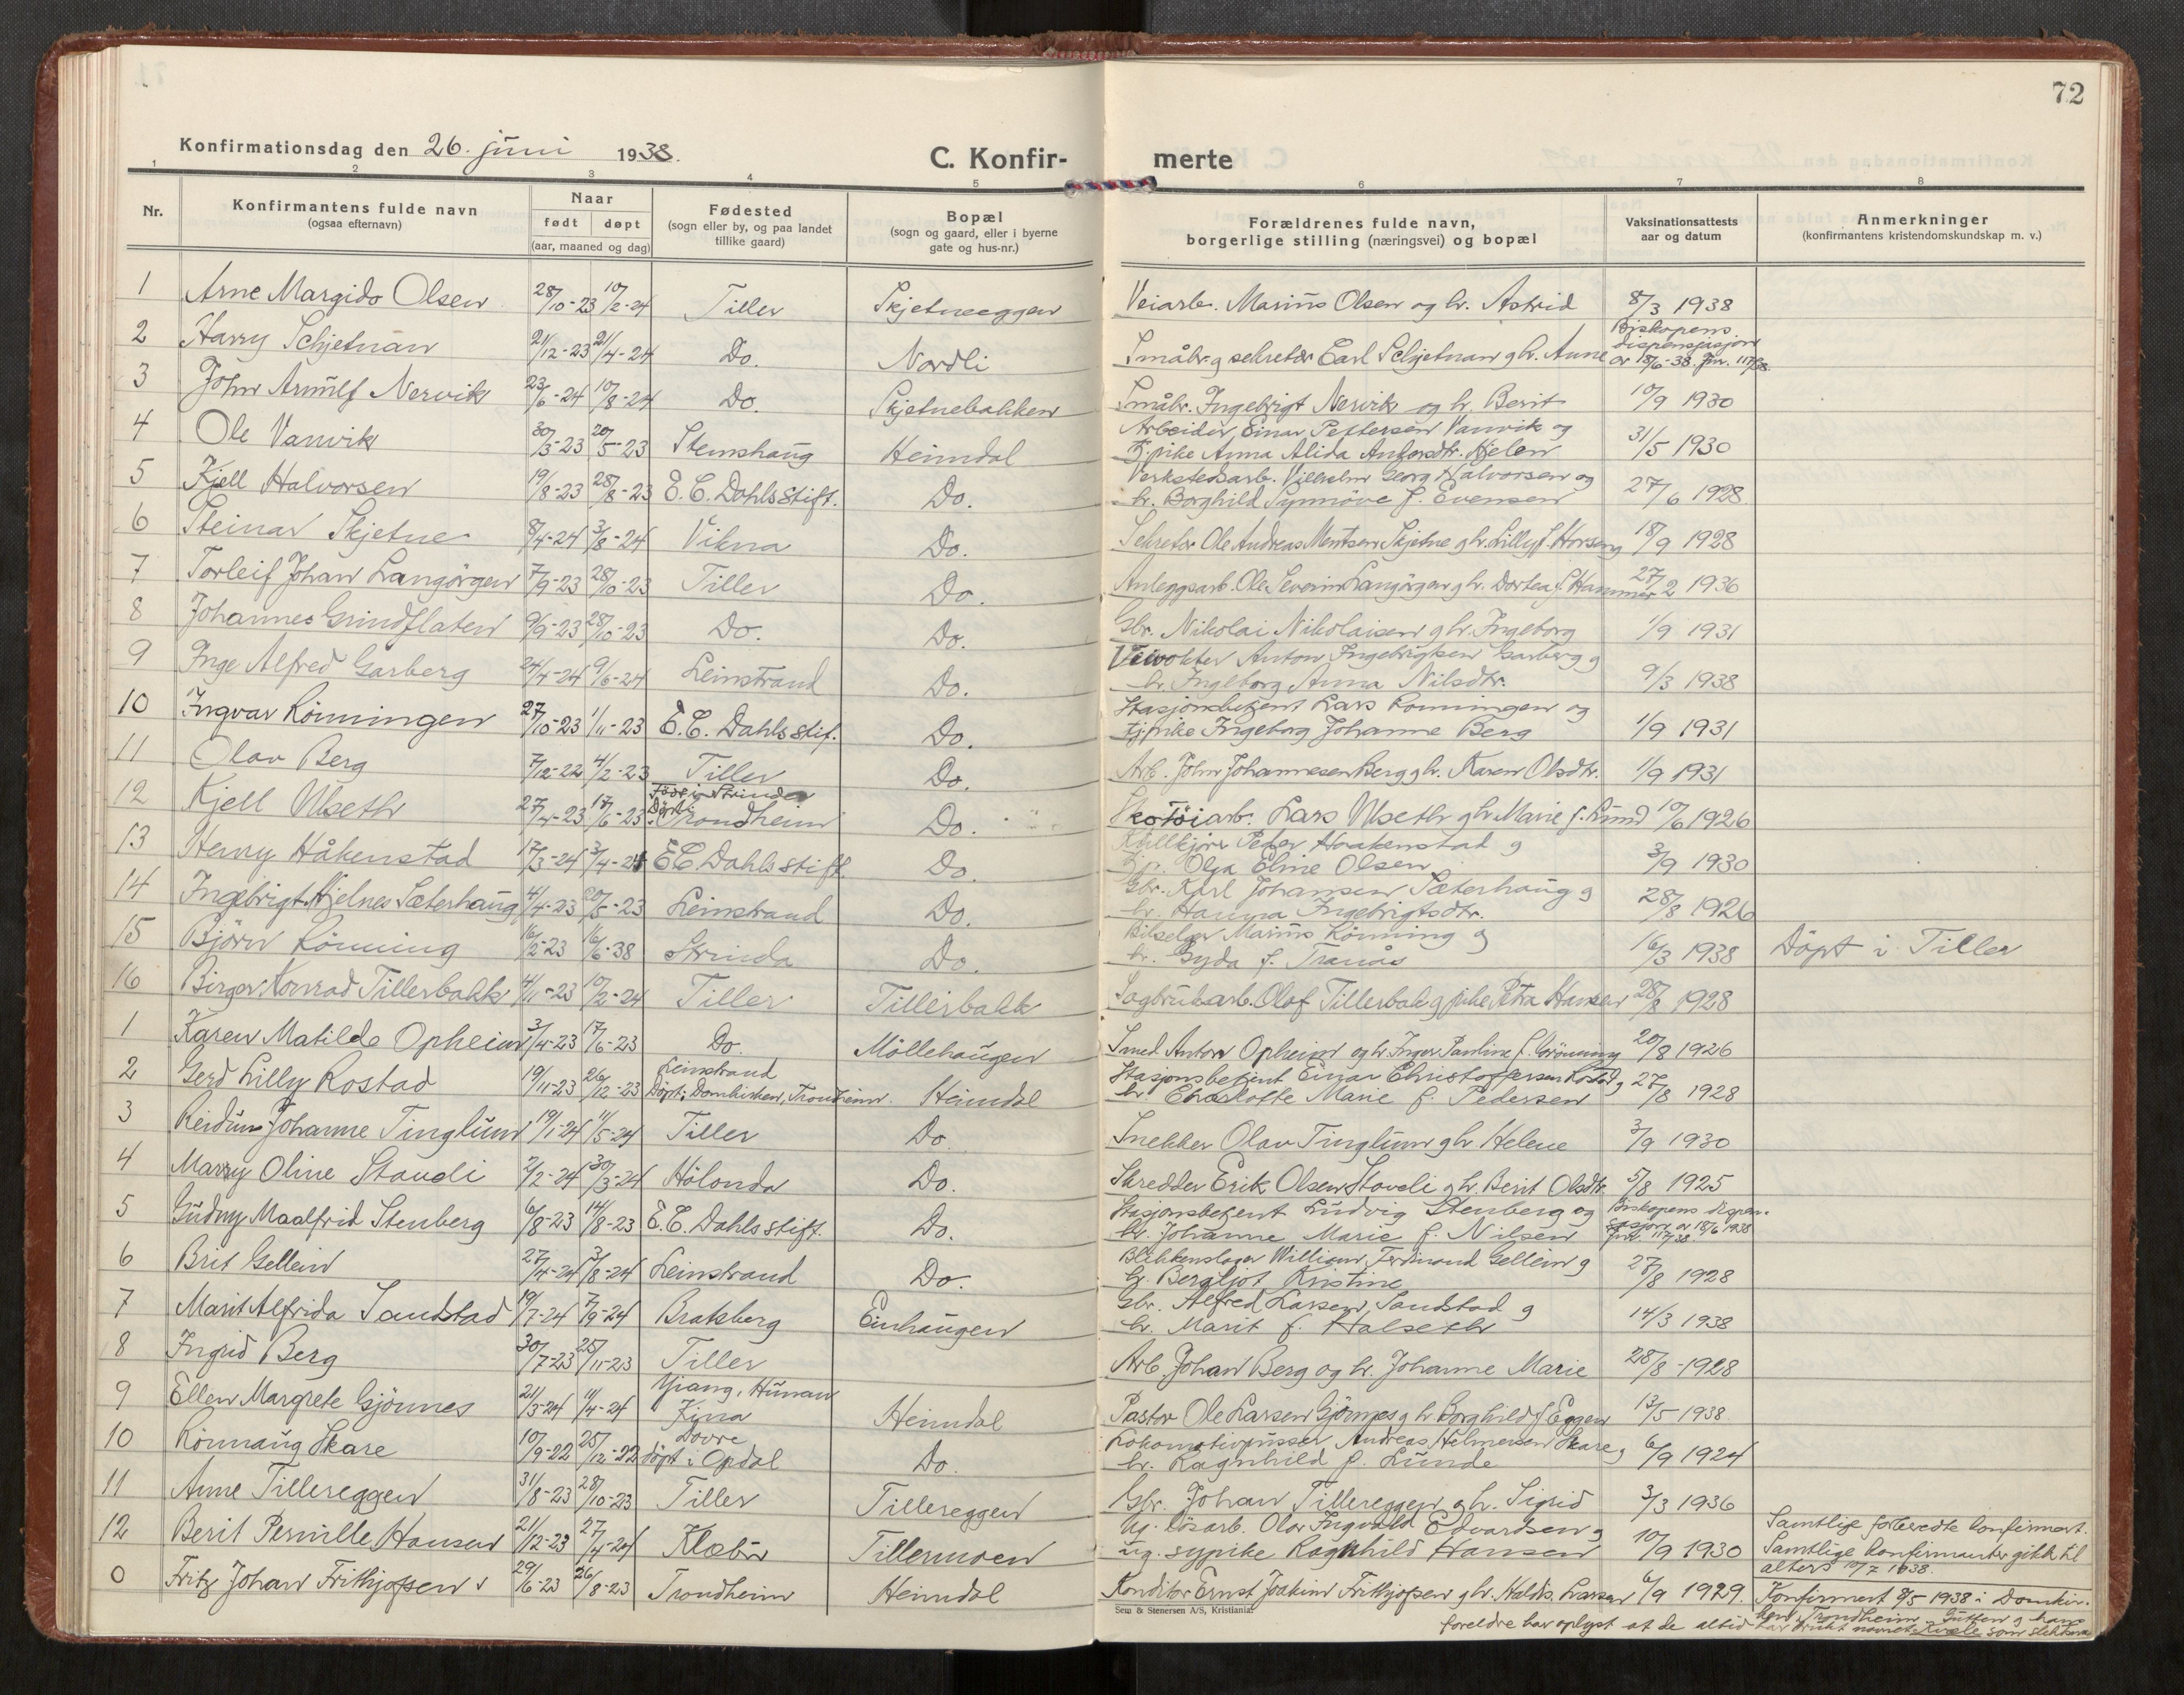 72
Konfirmationsdag den 26. juni 1938.
C. Konfir- merte
1 2 3 4 5 6 7 8
Nr. Konfirmantens fulde navn (ogsaa efternavn) Naar født døpt (aar, maaned og dag) Fødested (sogn eller by, og paa landet tillike gaard) Bopæl (sogn og gaard, eller i byerne gate og hus-nr.) Forældrenes fulde navn, borgerlige stilling (næringsvei) og bopæl Vaksinationsattests aar og datum Anmerkninger (konfirmantens kristendomskundskap m. v.)
1 Arne Margido Olsen 28/10-23 10/2-24 Tiller Skjetneeggen Veiarb. Marius Olsen og h. Astrid 8/3 1938
2 Harry Schjetnan 21/12-23 21/4-24 Do. Nordli Småbr. g sekretær Earl Schjetnan g h. Anne Biskopens dispensasjon av 18/6-38.
3 John Arnulf Nervik 23/6-24 10/8-24 Do. Skjetnebakken Småbr. Ingebrigt Nervik og h. Berit 10/9 1930
4 Ole Vanvik 30/3-23 20/5-23 Stemshaug Heimdal Arbeider Einar Pettersen Vanvik og
Anna Alida 31/5 1930
5 Kjell Halvorsen 19/8-23 28/8-23 E. C. Dahls stift. Do. Verkstedsarb. Vilhelm Georg Halvorsen og
h. Borghild Synnöve f. Evensen 27/6 1928
6 Steinar Skjetne 8/4-24 3/8-24 Vikna Do. Sekretær Ole Andreas Mentsen Skjetne g h. Lilly f. Horseng 18/9 1928
7 Torleif Johan Langörgen 7/9-23 28/10-23 Tiller Do. Anleggsarb. Ole Severin Langörgen g h. Dortea f. Hammer 27/2 1936
8 Johannes Grindflaten 9/9-23 28/10-23 Do. Do. Gbr. Nikolai Nikolaisen g h. Ingeborg 1/9 1931
9 Inge Alfred Garberg 24/4-24 9/6-24 Leinstrand Do. Veivokter Anton Ingebrigtsen Garberg g
h. Ingeborg Anna Nilsdtr. 9/3 1938
10 Ingvar Lönningen 27/10-23 1/11-23 E. C. Dahls stif. Do. Stasjonsbetjent Lars Lönningen og
tj.pike Ingeborg Johanne Berg 1/9 1931
11 Olav Berg 7/12-22 4/2-23 Tiller Do. Arb. John Johannesen Berg g h. Karen Olsdtr. 1/9 1931
12 Kjell Ulseth 27/4-23 17/6-23 Född i Strinda Döpt i Trondheim Do. Skotöiarb. Lars Ulseth g h. Marie f. Lund 10/6 1926
13 Henry Håkenstad 17/3-24 3/4-24 E C Dahls stift. Do. Peder Haakenstad g
Olga Eline Olsen 3/9 1930
14 Ingebrigt Hjelnes Sæterhaug 4/4-23 20/5-23 Leinstrand Do. Gbr. Karl Johansen Sæterhaug g
h. Hanna Ingebrigtsdtr. 28/8 1926
15 Björn Rönning 16/2-23 16/6-38 Strinda Do. Bileier Marius Rönning g
h. Gyda f. Tranås 16/3 1938 Döpt i Tiller
16 Birger Konrad Tillerbakk 4/11-23 10/2-24 Tiller Tillerbakk Sagbrukarb. Olaf Tillerbakk g pike Petra Hansen 28/8 1928
1 Karen Matilde Opheim 3/4-23 17/6-23 Do. Möllehaugen Smed Anton Opheim og h. Inger Pauline f. Grönning 20/8 1926
2 Gerd Lilly Rostad 19/11-23 26/12-23 Leinstrand Döpt i Domkirken, Trondheim. Heimdal Stasjonsbetjent Einar Christoffersen Rostad g
h. Charlotte Marie f. Pedersen 27/8 1928
3 Reidun Johanne Tinglum 19/1-24 11/5-24 Tiller Do. Snekker Olav Tinglum g h. Helene 3/9 1930
4 Marry Oline Stavdi 2/2-24 30/3-24 Hölonda Do. Skredder Erik Olsen Stavdi g h. Berit Olsdtr. 5/8 1925
5 Gudny Maalfrid Stenberg 6/8-23 14/8-23 E. C. Dahls stift. Do. Stasjonsbetjent Ludvig Stenberg og
h. Johanne Marie f. Nilsen Biskopens dispensasjon av 18/6 1938
6 Brit Gellein 27/4-24 3/8-24 Leinstrand Do. Blikkenslager William Ferdinand Gellein g
h. Bergljot Kristine 27/8 1928
7 Marit Alfrida Sandstad 19/7-24 7/9-24 Bratsberg Einhaugen Gbr. Alfred Larsen Sandstad g
h. Marit f. Halseth 14/3 1938
8 Ingrid Berg 30/7-23 25/11-23 Tiller Arb. Johan Berg og h. Johanne Marie 28/8-1928
9 Ellen Margrete Gjönnes 21/3-24 11/4-24 Yiang, Hunan Kina Heimdal Pastor Ole Larsen Gjönnes g h. Borghild f. Eggen 13/5 1938
10 Rönnaug Skare 10/9-22 25/12-22 Dovre döpt i Opdal Do. Lokomotivpusser Andreas Helmersen Skare g
h. Ragnhild f. Lunde 6/9 1924
11 Anne Tillereggen 31/8-23 28/10-23 Tiller Tillereggen Gbr. Johan Tillereggen g h. Sigrid 3/3 1936
12 Berit Pernille Hansen 21/12-23 27/4-24 Klæbu Tillermoen Ug. lösarb. Olav Ingvald Edvardsen g
ug. sypike Ragnhild Hansen 10/9 1930 Samtlige forberedte konfirmert.
Samtlige konfirmanter gikk til
alters 10/7 1938.
0 Fritz Johan Frithjofsen 29/6-23 26/8-23 Trondheim Heimdal Konditor Ernst Joakim Frithjofsen g h. Haldis Larsen 6/9 1929. Konfirmert 8/5 1938 i Domkir-
ken, Trondheim. Gutten g hans
foreldre har oplyst at de altid har brukt navnet Kvale som slektsn
Sem & Stenersen A/S, Kristiania.